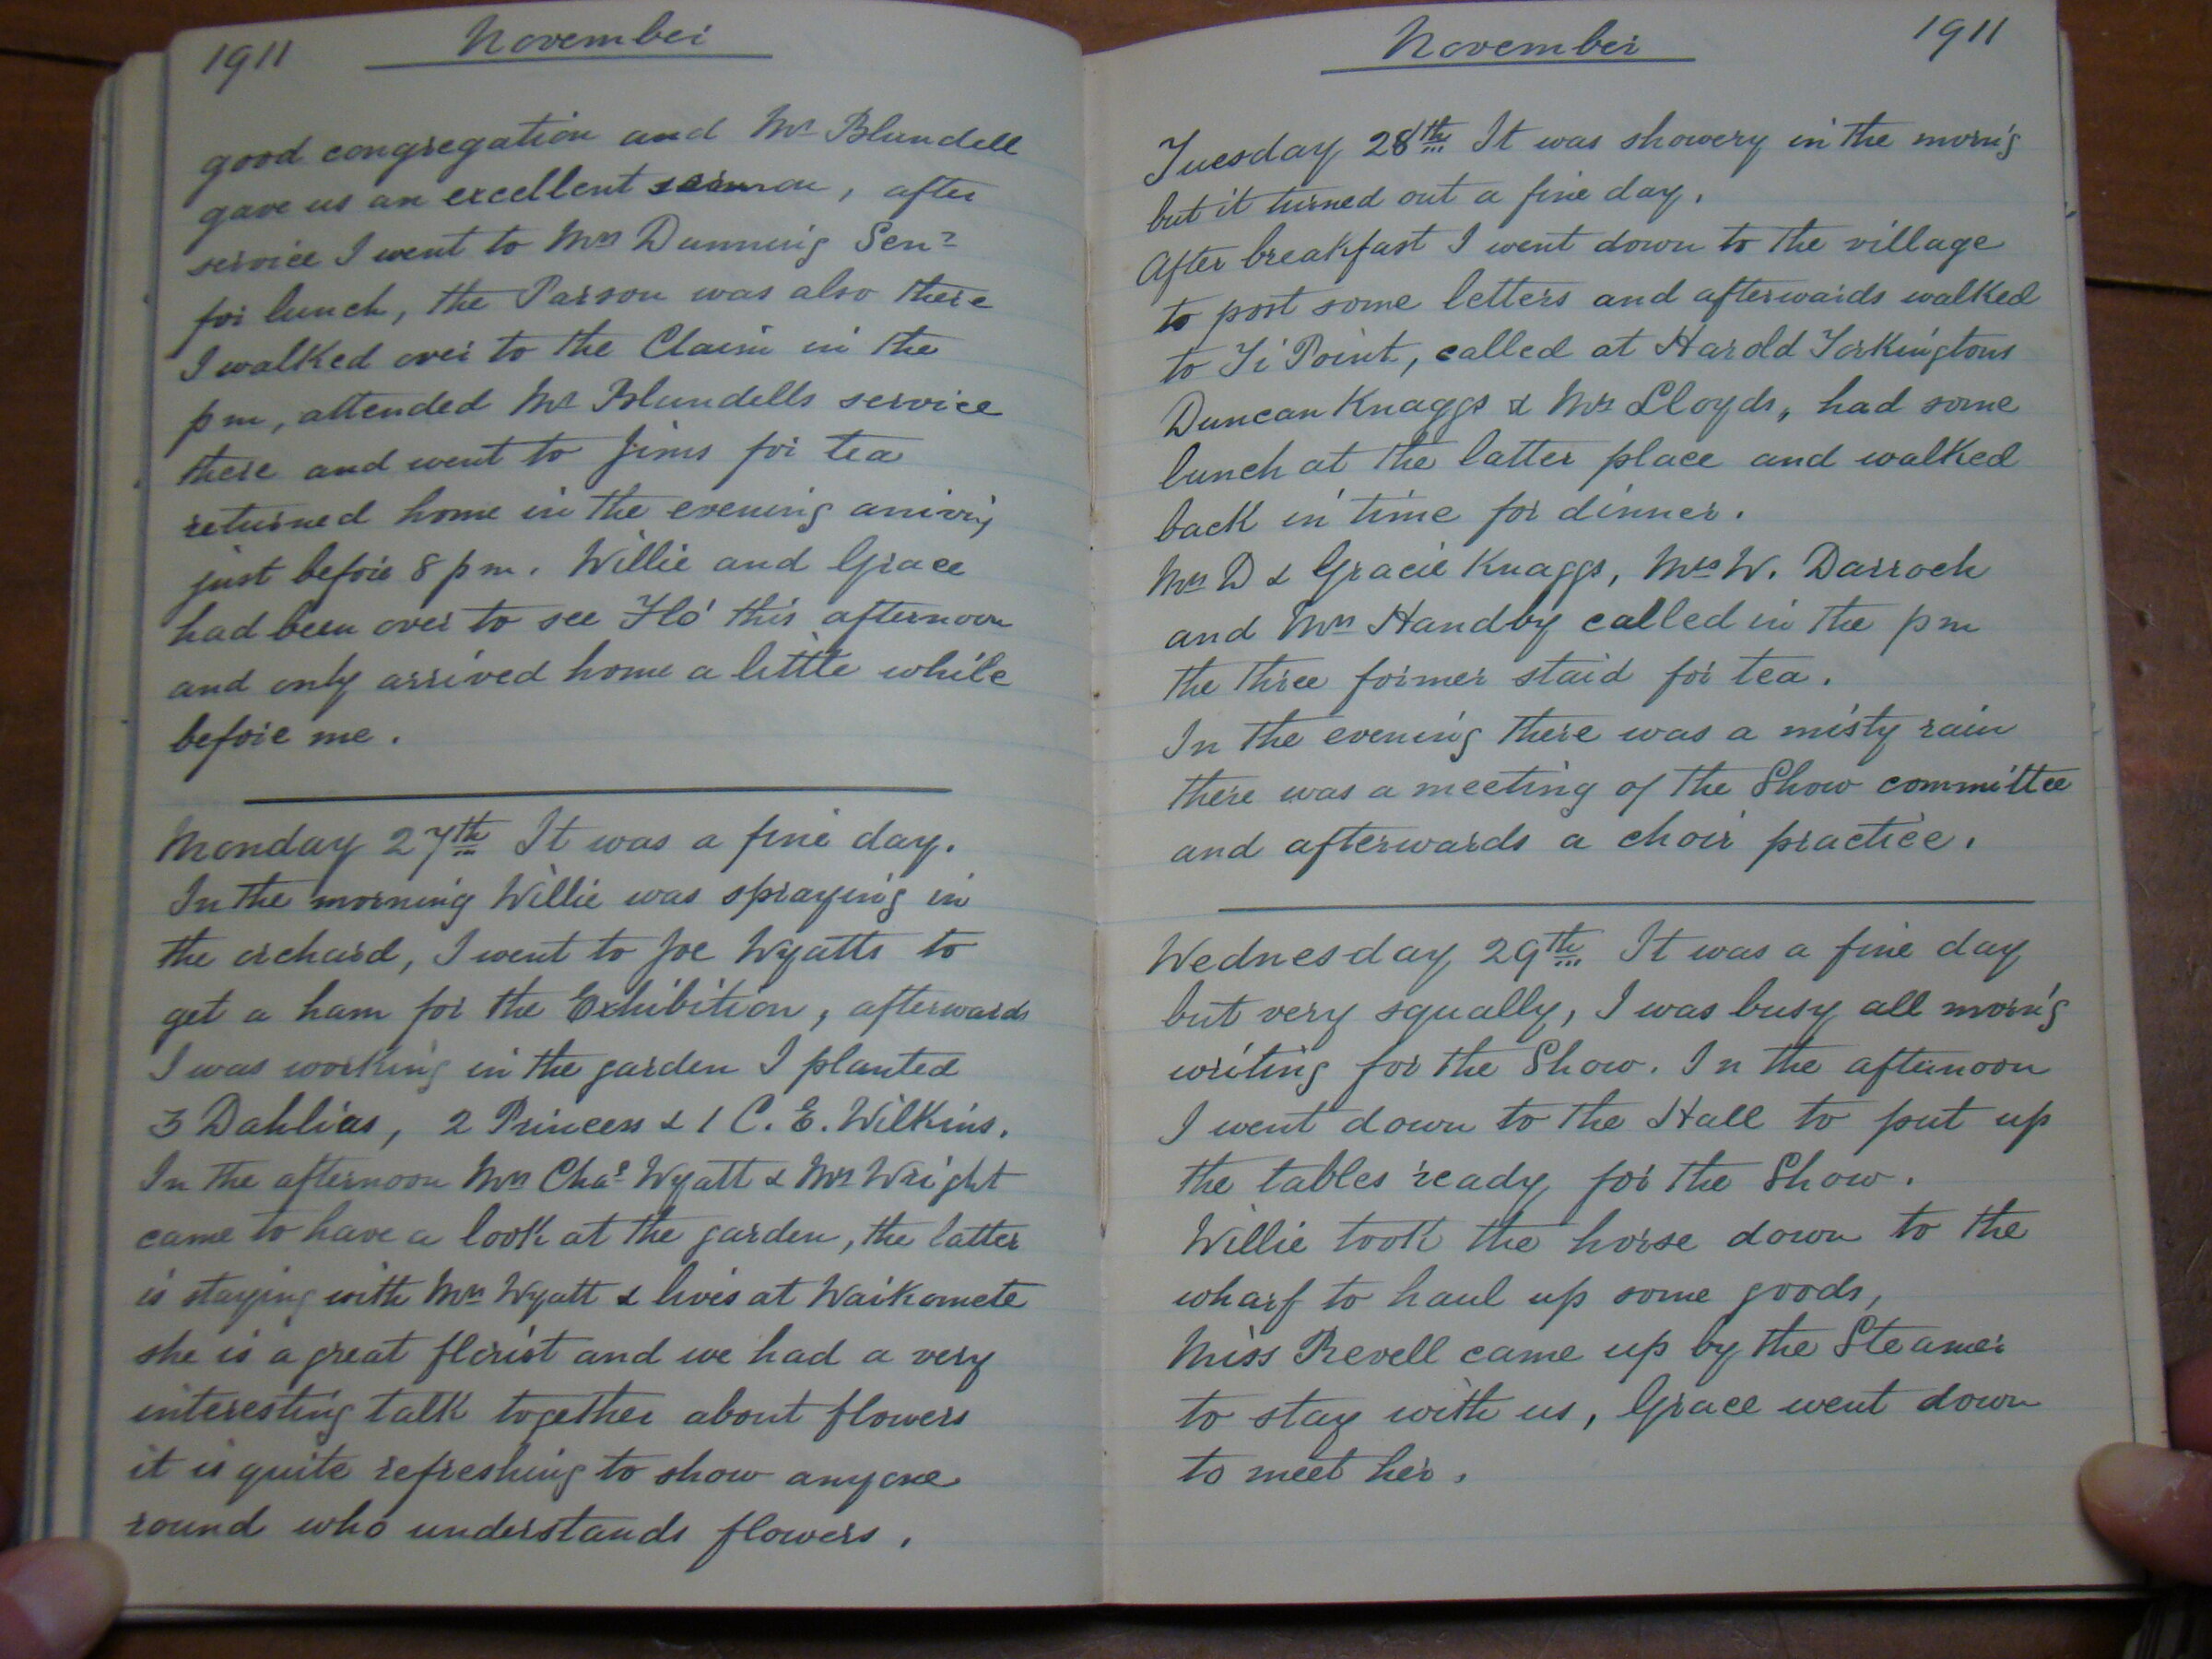 1911 November
good congregation and Mr Blundell
gave us an excellent sermon, after
service I went to Mrs Dunning Senr
for lunch, the Parson was also there
I walked over to the Claim in the
pm, attended Mr Blundells service
there and went to Jims for tea
returned home in the evening arriving
just before 8 pm. Willie and Grace
had been over to see Flo' this afternoon
and only arrived home a little while
before me.
Monday 27th It was a fine day.
In the morning Willie was spraying in
the orchard, I went to Joe Wyatts to
get a ham for the Exhibition, afterwards
I was working in the garden I planted
3 Dahlias, 2 Princess & 1 C. E. Wilkins.
In the afternoon Mrs Chas Wyatt & Mrs Wright
came to have a look at the garden, the latter
is staying with Mrs Wyatt & lives at Waikomete
she is a great florist and we had a very
interesting talk together about flowers
it is quite refreshing to show anyone
round who understands flowers.
November 1911
Tuesday 28th It was showery in the morn'g
but it turned out a fine day.
After breakfast I went down to the village
to post some letters and afterwards walked
to Ti Point, called at Harold Torkingtons
Duncan Knaggs & Mrs Lloyds, had some
lunch at the latter place and walked
back in time for dinner.
Mrs D & Gracie Knaggs, Mrs W. Darroch
and Mrs Handby called in the pm
the three former staid for tea.
In the evening there was a misty rain
there was a meeting of the Show committee
and afterwards a choir practice.
Wednesday 29th It was a fine day
but very squally, I was busy all morn'g
writing for the Show. In the afternoon
I went down to the Hall to put up
the tables ready for the Show.
Willie took the horse down to the
wharf to haul up some goods,
Miss Revell came up by the Steamer
to stay with us, Grace went down
to meet her.